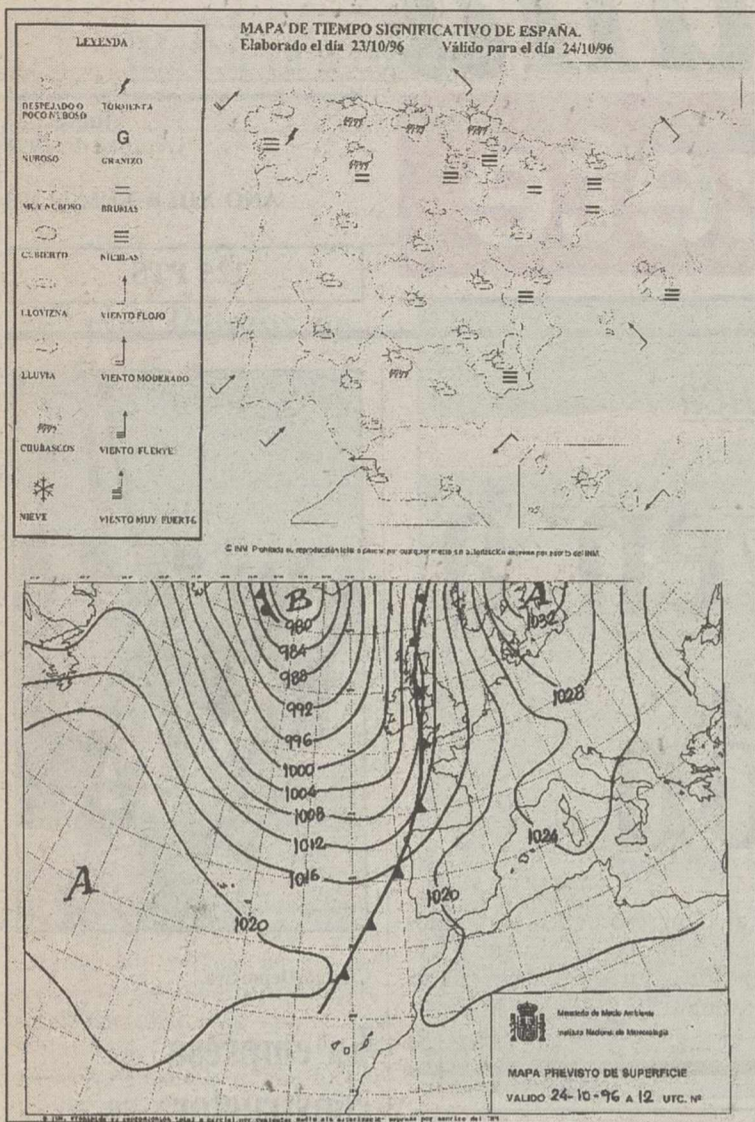 LEYENDA
MAPA DE TIEMPO SIGNIFICATIVO DE ESPAÑA.
Elaborado el día 23/10/96 Válido para el día 24/10/96
DESPEJADO O
POCO NUBOSO
TORMENTA
NUBOSO
G
GRANIZO
MUY NUBOSO
BRUMAS
CUBIERTO
NIEBLAS
LLOVIZNA
VIENTO FLOJO
LLUVIA
VIENTO MODERADO
CHUBASCOS
VIENTO FUERTE
NIEVE
VIENTO MUY FUERTE
© INM Prohibida su reproducción total o parcial por cualquier medio sin autorización expresa por escrito del INM
B
A
980
1032
984
988
1028
992
996
1000
1004
1008
1012
1024
1016
A
1020
1020
Ministerio de Medio Ambiente
Instituto Nacional de Meteorología
MAPA PREVISTO DE SUPERFICIE
VALIDO 24-10-96 A 12 UTC. Nº